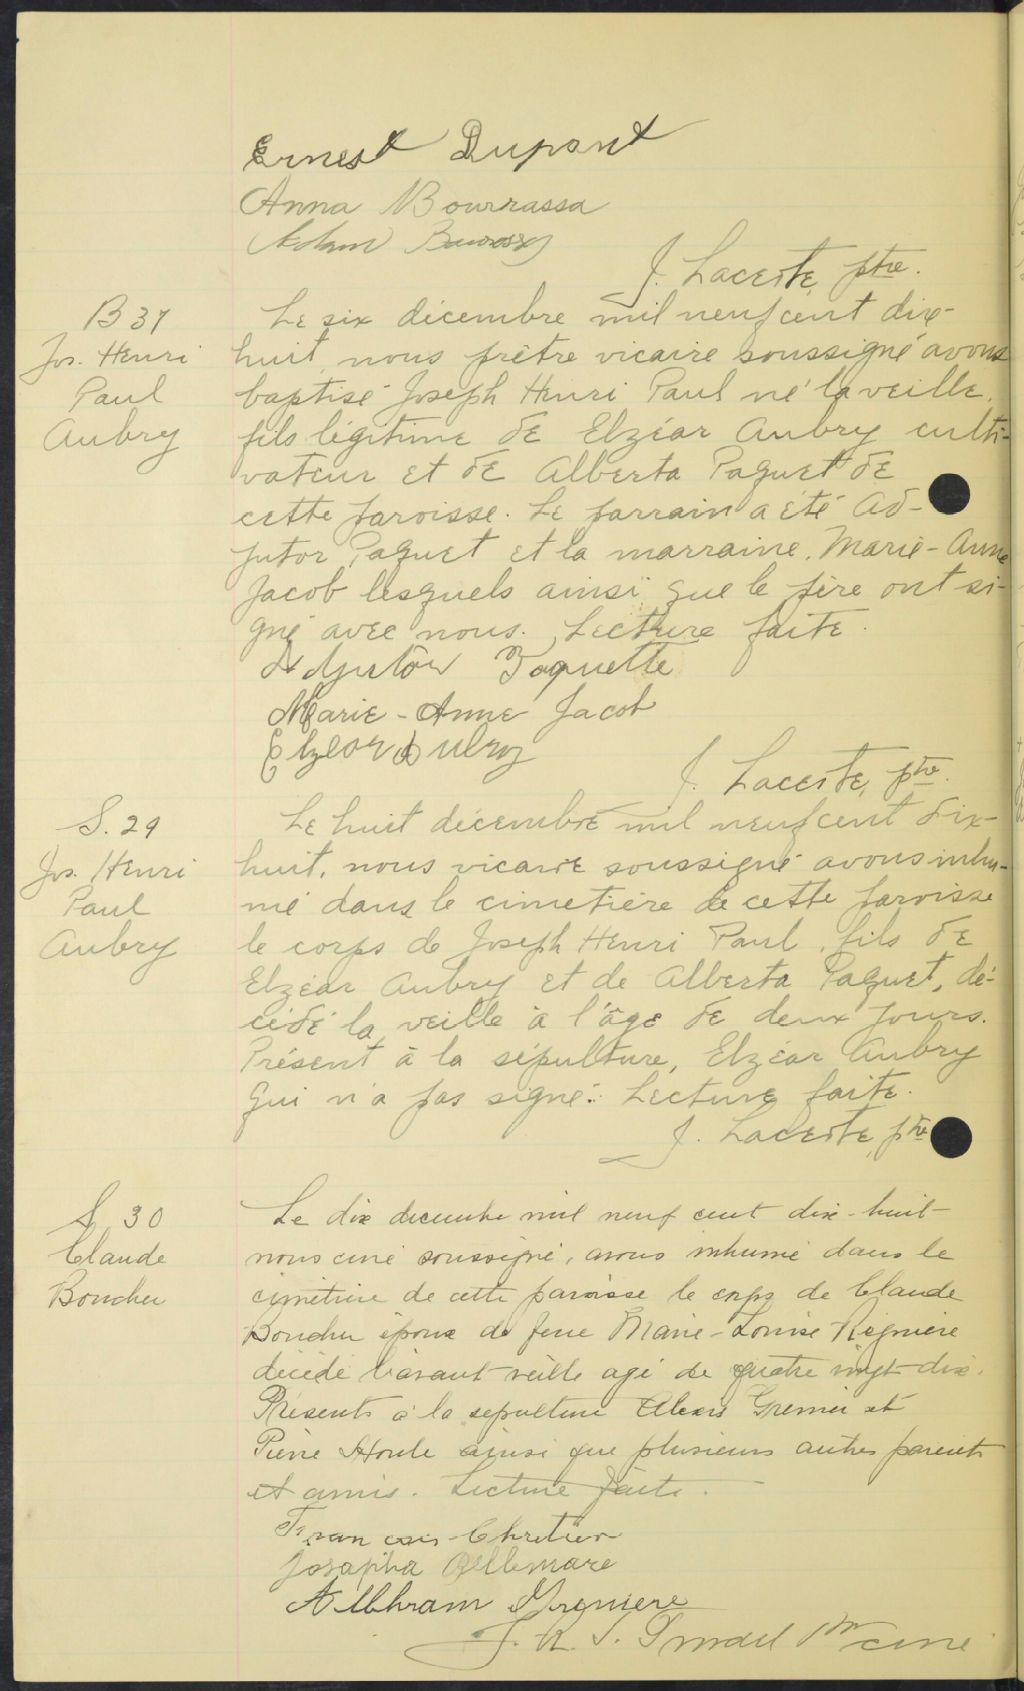 Ernest Dupont
Anna Bourrassa
J. Laceste, ptre.
B 37
Jos. Henri
Paul
Aubry
Le six décembre mil neuf cent dix-
huit, nous prêtre vicaire soussigné avons
baptisé Joseph Henri Paul né la veille,
fils légitime de Elzéar Aubry culti-
vateur et de Alberta Paquet de
cette paroisse. Le parrain a été Ad-
jutor Paquet et la marraine, Marie-Anne
Jacob lesquels ainsi que le père ont si-
gné avec nous. Lecture faite.
Adjutor Paquette
Marie-Anne Jacob
Elzear Aubry
J. Laceste, ptre.
S. 29
Jos. Henri
Paul
Aubry
Le huit décembre mil neuf cent dix-
huit, nous vicaire soussigné avons inhu-
mé dans le cimetière de cette paroisse
le corps de Joseph Henri Paul, fils de
Elzéar Aubry et de Alberta Paquet, dé-
cédé la veille à l'âge de deux jours.
Présent à la sépulture, Elzéar Aubry
qui n'a pas signé. Lecture faite.
J. Laceste, ptre
S. 30
Claude
Boucher
Le dix decembre mil neuf cent dix-huit
nous curé soussigné, avons inhumé dans le
cimetière de cette paroisse le corps de Claude
Boucher époux de feue Marie-Louise Regniere
décédé l'avant-veille agé de quatre vingt-dix.
Présents à la sepulture Alexis Grenier et
Pierre Houle ainsi que plusieurs autres parents
et amis. Lecture faite.
Francois Chretien
Josapha Bellemare
Abhram Greniere
curé